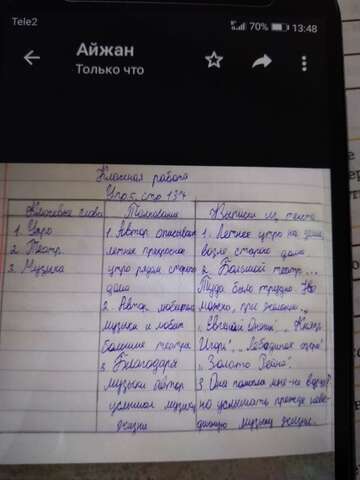 Tele2
70% 13:48
Айжан
Только что
Классная работа
Упр 5, стр 137
Ключевые слова Толкование Выписки из текста
1. Утро 1. Автор описывает 1. Летнее утро на даче,
2. Театр летнее прекрасное возле старого дома.
3. Музыка утро рядом старого 2. Большой театр...
дома Туда было трудно. Но
2. Автор любитель можно, при желании...
музыки и любит „Евгений Онегин", „Князь
большие театра Игорь", „Лебединое озеро"
3. Благодаря „Золото Рейна".
музыки автор 3. Она помогла мне
услышал музыку но услышать прежде неве-
жизни домую музыку жизни.